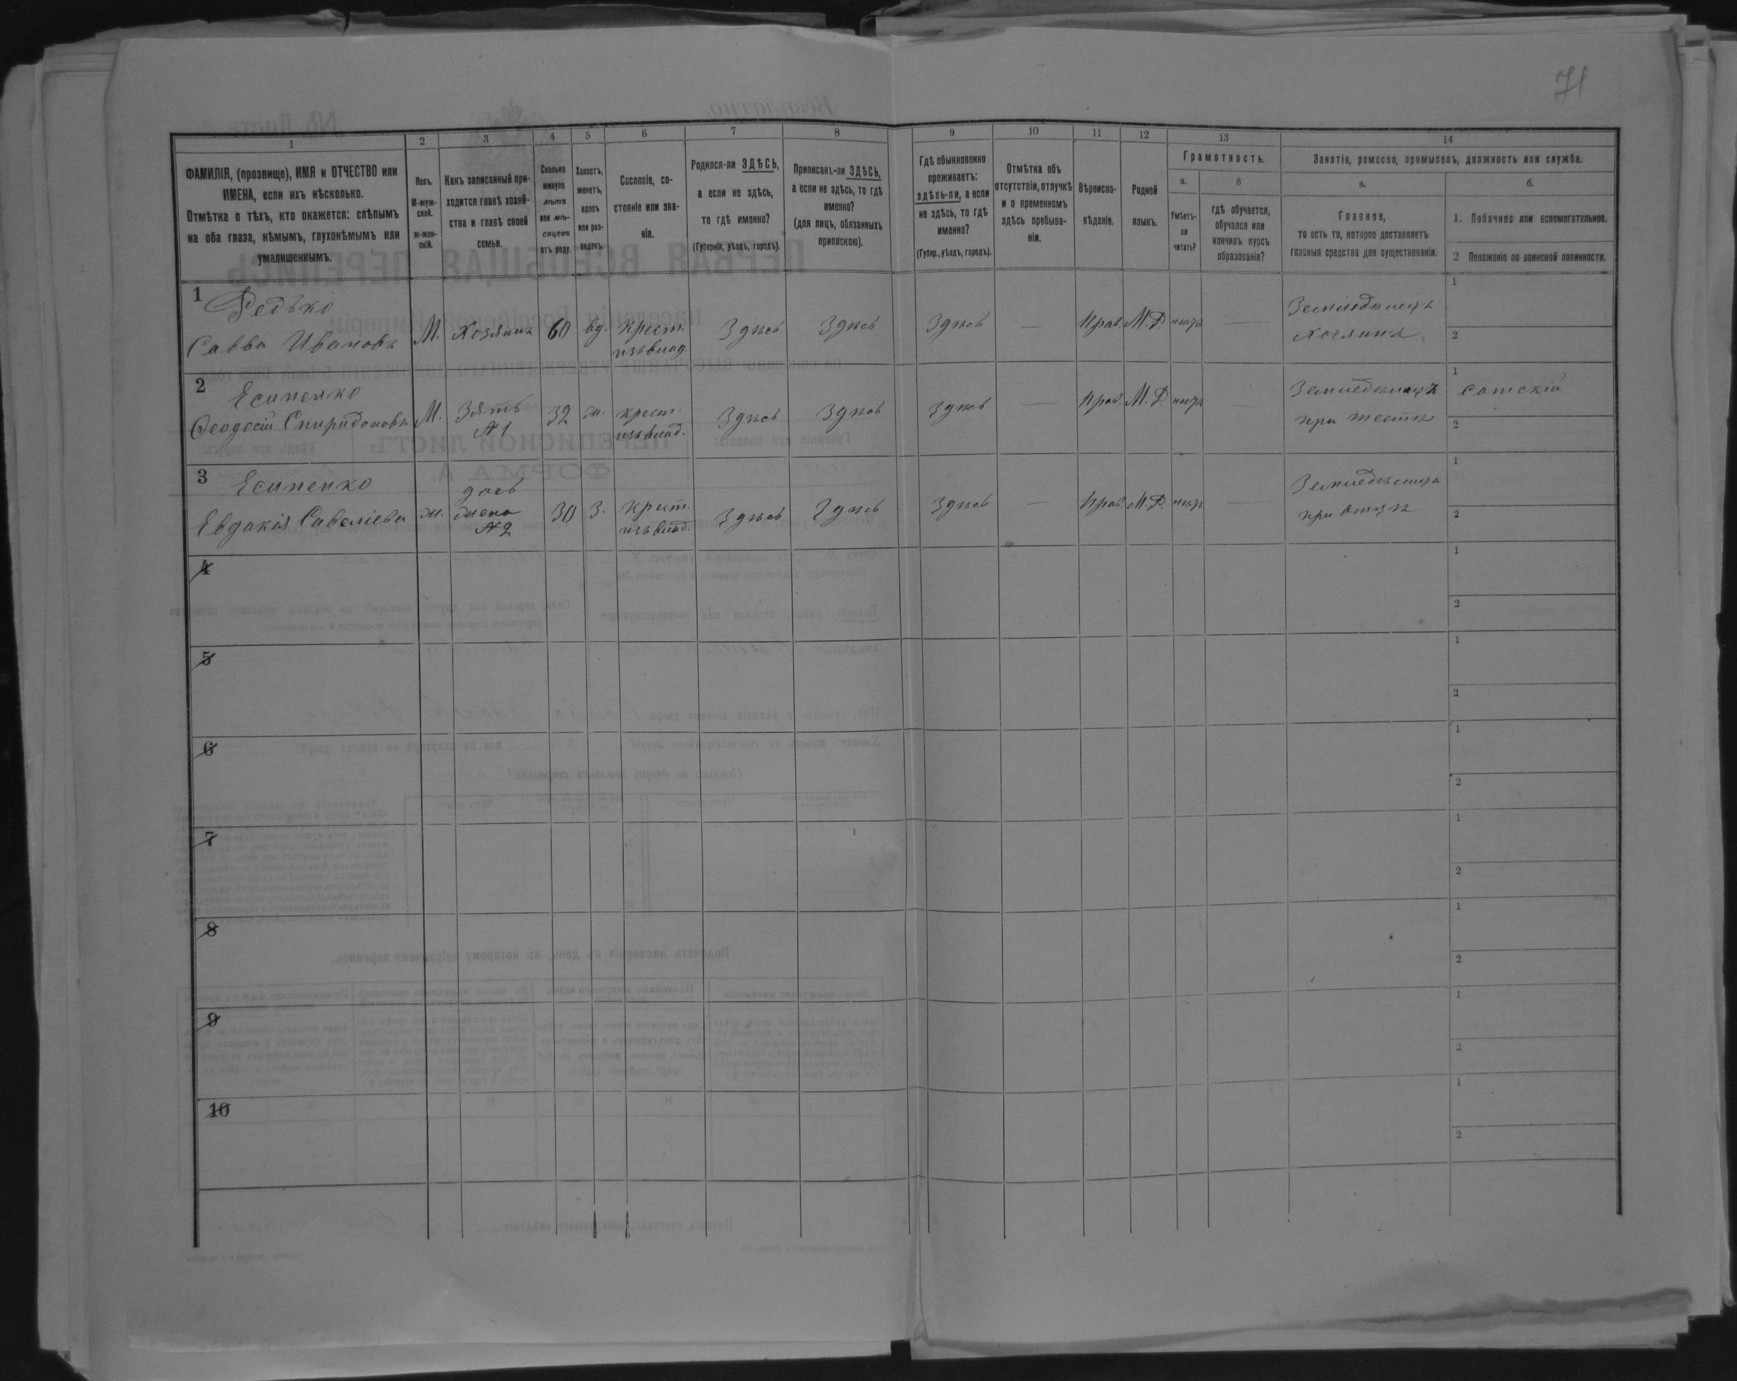 71
1
2
3
4
5
6
7
8
9
10
11
12
13
14
ФАМИЛІЯ, (прозвище), ИМЯ и ОТЧЕСТВО или
ИМЕНА, если ихъ нѣсколько.
Отмѣтка о тѣхъ, кто окажется: слѣпымъ
на оба глаза, нѣмымъ, глухонѣмымъ или
умалишеннымъ.
Полъ.
М-муж-
ской.
ж-жен-
скій.
Какъ записанный при-
ходится главѣ хозяй-
ства и главѣ своей
семьи.
Сколько
минуло
лѣтъ
или мѣ-
сяцевъ
отъ роду.
Холостъ,
женатъ,
вдовъ
или раз-
веденъ.
Сословіе, со-
стояніе или зва-
ніе.
Родился-ли ЗДѢСЬ,
а если не здѣсь,
то гдѣ именно?
(Губернія, уѣздъ, городъ).
Приписанъ-ли ЗДѢСЬ,
а если не здѣсь, то гдѣ
именно?
(для лицъ, обязанныхъ
припискою).
Гдѣ обыкновенно
проживаетъ:
здѣсь-ли, а если
не здѣсь, то гдѣ
именно?
(Губер., уѣздъ, городъ).
Отмѣтка объ
отсутствіи, отлучкѣ
и о временномъ
здѣсь пребыва-
ніи.
Вѣроиспо-
вѣданіе.
Родной
языкъ.
Грамотность.
а.
б
Умѣетъ-
ли
читать?
гдѣ обучается,
обучался или
кончилъ курсъ
образованія?
Занятіе, ремесло, промыселъ, должность или служба.
а.
б.
Главное,
то есть то, которое доставляетъ
главныя средства для существованія.
1. Побочное или вспомогательное.
2 Положеніе по воинской повинности.
1
Редько
Савва Ивановъ
М.
Хозяинъ
60
вд.
крест.
изъ влад.
Здѣсь
Здѣсь
Здѣсь
—
Прав.
М.Р.
нѣтъ
—
Земледѣлецъ
хозяинъ
1
2
2
Есипенко
Ѳеодосій Спиридоновъ
М.
Зять
№1
32
ж.
крест.
изъ влад.
Здѣсь
Здѣсь
Здѣсь
—
Прав.
М.Р.
нѣтъ
—
Земледѣлецъ
при тестѣ
1 сотскій
2
3
Есипенко
Евдакія Савеліева
ж.
дочь
жена
№2
30
З.
крест.
изъ влад.
Здѣсь
Здѣсь
Здѣсь
—
Прав.
М.Р.
нѣтъ
—
Земледѣлица
при отцѣ
1
2
4
1
2
5
1
2
6
1
2
7
1
2
8
1
2
9
1
2
10
1
2